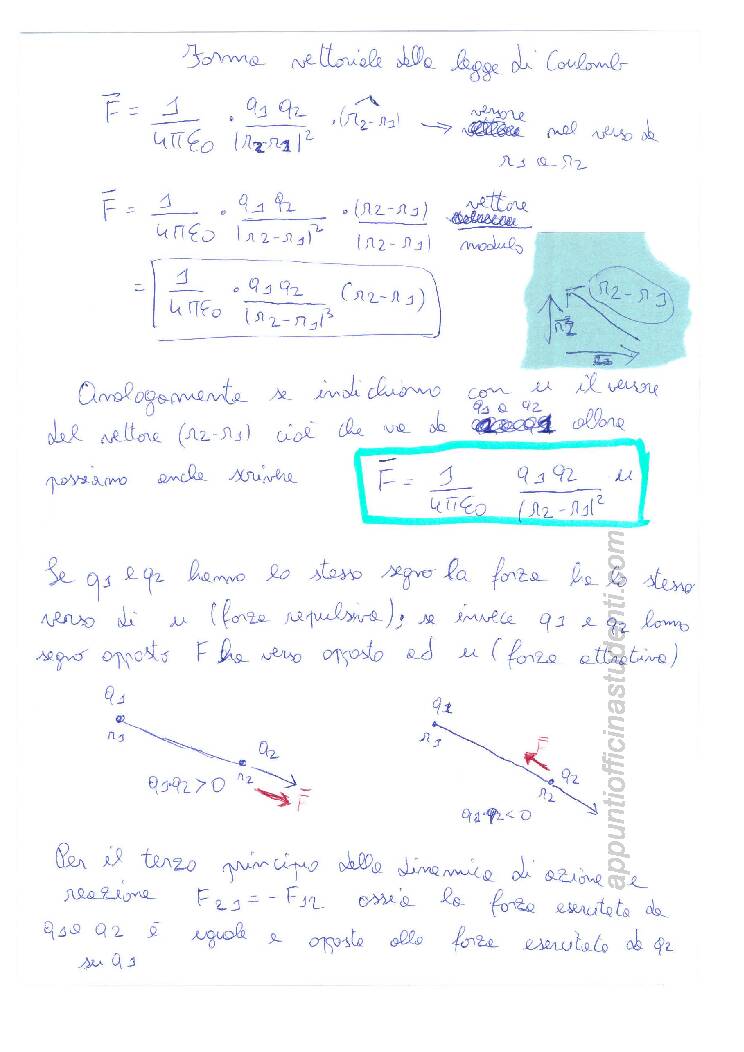 Forma vettoriale della legge di Coulomb
F = 1/4πε0 · q1 q2/|r2-r1|² · (r2-r1) → versore nel verso da
r1 a r2
F = 1/4πε0 · q1 q2/|r2-r1|² · (r2-r1)/(r2-r1) vettore
modulo
= 1/4πε0 · q1 q2/|r2-r1|³ (r2-r1)
r2-r1
r2
r1
Analogamente se indichiamo con u il versore
del vettore (r2-r1) cioè che va da q1 a q2 allora
possiamo anche scrivere F = 1/4πε0 q1 q2/(r2-r1)² u
Se q1 e q2 hanno lo stesso segno la forza ha lo stesso
verso di u (forza repulsiva); se invece q1 e q2 hanno
segno opposto F ha verso opposto ad u (forza attrattiva)
q1
r1
q2
r2
q1·q2 > 0
F
q1
r1
F
q2
r2
q1·q2 < 0
Per il terzo principio della dinamica di azione e
reazione F21 = - F12 ossia la forza esercitata da
q1 a q2 è uguale e opposta alla forza esercitata da q2
su q1
appuntiofficinastudenti.com